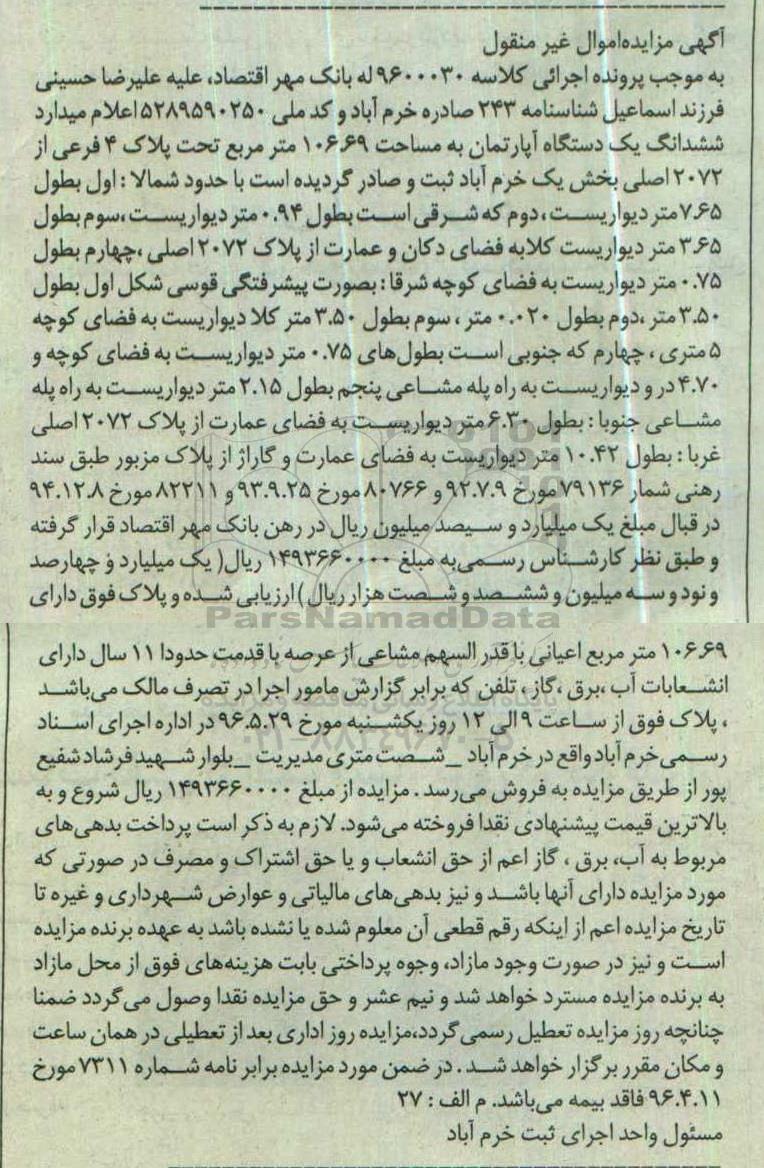 آگهی مزایده‌اموال غیر منقول
به موجب پرونده اجرائی کلاسه ۹۶۰۰۰۳۰ له بانک مهر اقتصاد، علیه علیرضا حسینی
فرزند اسماعیل شناسنامه ۲۴۳ صادره خرم آباد و کد ملی ۵۲۸۹۵۹۰۲۵۰ اعلام میدارد
ششدانگ یک دستگاه آپارتمان به مساحت ۱۰۶.۶۹ متر مربع تحت پلاک ۴ فرعی از
۲۰۷۲ اصلی بخش یک خرم آباد ثبت و صادر گردیده است با حدود شمالا : اول بطول
۷.۶۵ متر دیواریست ، دوم که شرقی است بطول ۰.۹۴ متر دیواریست ،سوم بطول
۳.۶۵ متر دیواریست کلابه فضای دکان و عمارت از پلاک ۲۰۷۲ اصلی ،چهارم بطول
۰.۷۵ متر دیواریست به فضای کوچه شرقا : بصورت پیشرفتگی قوسی شکل اول بطول
۳.۵۰ متر ،دوم بطول ۰.۰۲۰ متر ، سوم بطول ۳.۵۰ متر کلا دیواریست به فضای کوچه
۵ متری ، چهارم که جنوبی است بطول‌های ۰.۷۵ متر دیواریست به فضای کوچه و
۴.۷۰ در و دیواریست به راه پله مشاعی پنجم بطول ۲.۱۵ متر دیواریست به راه پله
مشاعی جنوبا : بطول ۶.۳۰ متر دیواریست به فضای عمارت از پلاک ۲۰۷۲ اصلی
غربا : بطول ۱۰.۴۲ متر دیواریست به فضای عمارت و گاراژ از پلاک مزبور طبق سند
رهنی شمار ۷۹۱۳۶ مورخ ۹۲.۷.۹ و ۸۰۷۶۶ مورخ ۹۳.۹.۲۵ و ۸۲۲۱۱ مورخ ۹۴.۱۲.۸
در قبال مبلغ یک میلیارد و سیصد میلیون ریال در رهن بانک مهر اقتصاد قرار گرفته
و طبق نظر کارشناس رسمی به مبلغ ۱۴۹۳۶۶۰۰۰۰ ریال( یک میلیارد و چهارصد
و نود و سه میلیون و ششصد و شصت هزار ریال ) ارزیابی شده و پلاک فوق دارای
ParsNamadData
۱۰۶.۶۹ متر مربع اعیانی با قدر السهم مشاعی از عرصه با قدمت حدودا ۱۱ سال دارای
انشعابات آب ،برق ،گاز ، تلفن که برابر گزارش مامور اجرا در تصرف مالک می‌باشد
، پلاک فوق از ساعت ۹ الی ۱۲ روز یکشنبه مورخ ۹۶.۵.۲۹ در اداره اجرای اسناد
رسمی خرم آباد واقع در خرم آباد _شصت متری مدیریت _بلوار شهید فرشاد شفیع
پور از طریق مزایده به فروش می‌رسد . مزایده از مبلغ ۱۴۹۳۶۶۰۰۰۰ ریال شروع و به
بالاترین قیمت پیشنهادی نقدا فروخته می‌شود. لازم به ذکر است پرداخت بدهی‌های
مربوط به آب، برق ، گاز اعم از حق انشعاب و یا حق اشتراک و مصرف در صورتی که
مورد مزایده دارای آنها باشد و نیز بدهی‌های مالیاتی و عوارض شهرداری و غیره تا
تاریخ مزایده اعم از اینکه رقم قطعی آن معلوم شده یا نشده باشد به عهده برنده مزایده
است و نیز در صورت وجود مازاد، وجوه پرداختی بابت هزینه‌های فوق از محل مازاد
به برنده مزایده مسترد خواهد شد و نیم عشر و حق مزایده نقدا وصول می‌گردد ضمنا
چنانچه روز مزایده تعطیل رسمی گردد،مزایده روز اداری بعد از تعطیلی در همان ساعت
و مکان مقرر برگزار خواهد شد . در ضمن مورد مزایده برابر نامه شماره ۷۳۱۱ مورخ
۹۶.۴.۱۱ فاقد بیمه می‌باشد. م الف : ۲۷
مسئول واحد اجرای ثبت خرم آباد